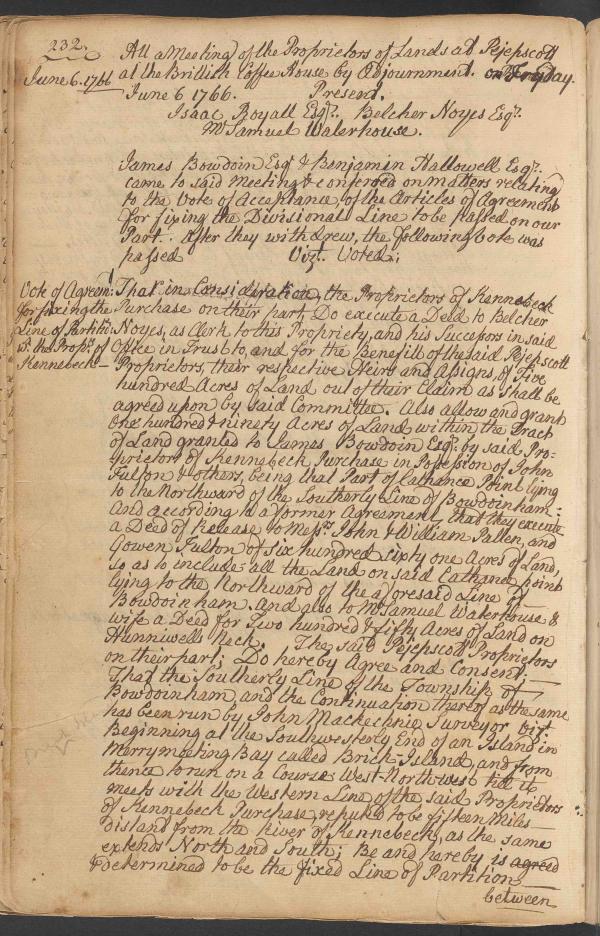 232.
June 6. 1766
Att a Meeting of the Proprietors of Lands at Pejepscott
at the Brittish Coffee House by Adjournment. on Fryday.
June 6 1766. Present.
Isaac Royall Esqr. Belcher Noyes Esqr.
Mr Samuel Waterhouse.
James Bowdoin Esqr & Benjamin Hallowell Esqr.
came to said Meeting & conferred on matters relating
to the Vote of Acceptance, of the Articles of Agreement
for fixing the Divisional Line to be passed on our
Part. After they withdrew, the following Vote was
passed Vizt. Voted;
Vote of Agreemt:
for fixing the
Line of Partitin
wt. the Proprs. of
Kennebeck—
That in Consideration, the Proprietors of Kennebeck
Purchase on their part, Do execute a Deed to Belcher
Noyes, as Clerk to this Propriety, and his Successors in said
Office in Trust to, and for the Benefitt of the said Pejepscott
Proprietors, their respective Heirs and Assigns, of Five
hundred Acres of Land out of their Claim as shall be
agreed upon by said Committee. Also allow and grant
One hundred & ninety Acres of Land within the Tract
of Land granted to James Bowdoin Esqr. by said Pro=
prietors of Kennebeck Purchase in Possession of John
Fulton & others, being that Part of Cathance Point lying
to the Northward of the Southerly Line of Bowdoinham=
And according to a former Agreement that they execute
a Deed of Release to Messrs. John & William Patten, and
Gowen Fulton of Six hundred sixty one Acres of Land,
so as to include all the Land on said Cathance point
lying to the Northward of the aforesaid Line of—
Bowdoinham. And also to Mr Samuel Waterhouse &
wife a Deed for Two hundred & fifty Acres of Land on
Hunniwells Neck. The said Pejepscott Proprietors
on their part; Do hereby Agree and Consent;—
That the Southerly Line of the Township of—
Bowdoinham and the Continuation thereof as the same
has been run by John Mackechnie Surveyor Vizt.
Beginning at the Southwesterly End of an Island in
Merrymeeting Bay called Brick-Island, and from
thence to run on a Course West-Northwest till it
meets with the Western Line of the said Proprietors
of Kennebeck Purchase, reputed to be fifteen Miles—
distand from the River of Kennebeck, as the same
extends North and South; Be and hereby is agreed
& determined to be the fixed Line of Partition—
between